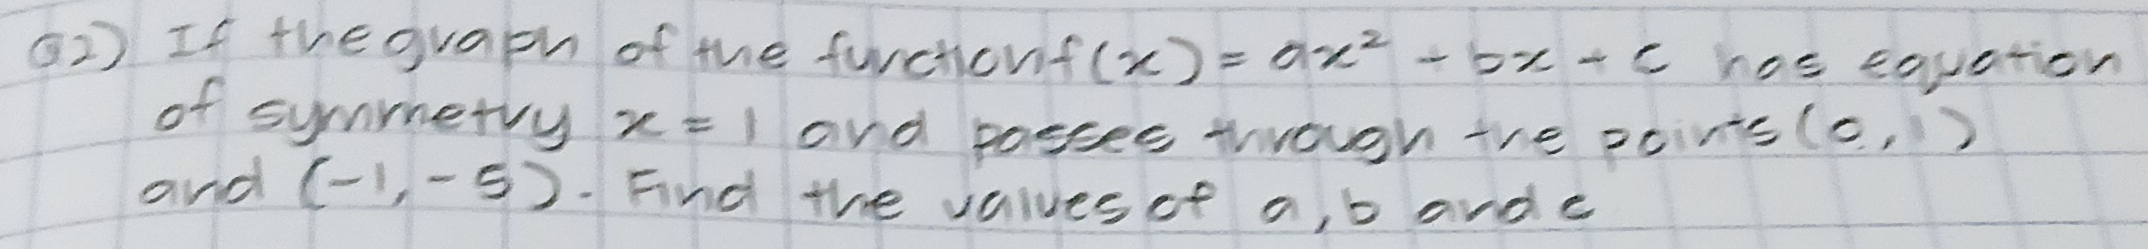 Q2) If the graph of the function f(x) = ax² + bx + c has equation
of symmetry x = 1 and passes through the points (0, 1)
and (-1, -5). Find the values of a, b and c